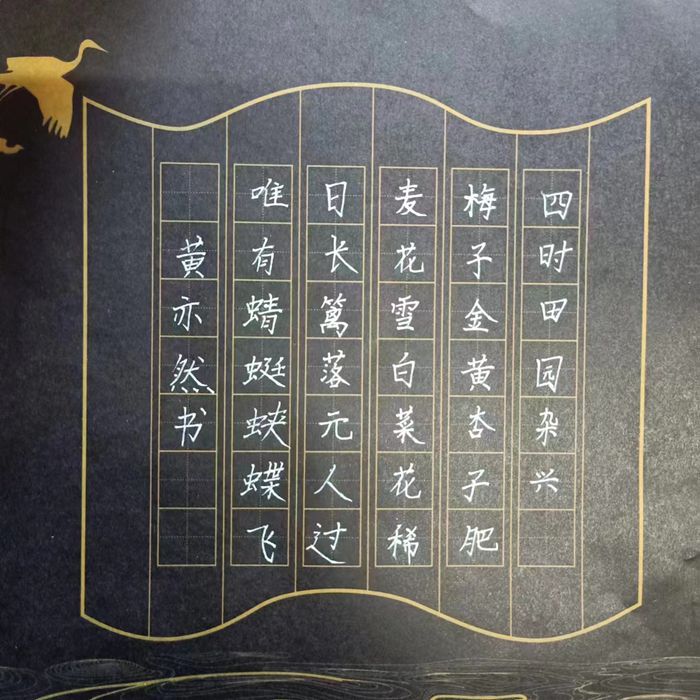 四时田园杂兴
梅子金黄杏子肥
麦花雪白菜花稀
日长篱落元人过
唯有蜻蜓蛱蝶飞
黄亦然书